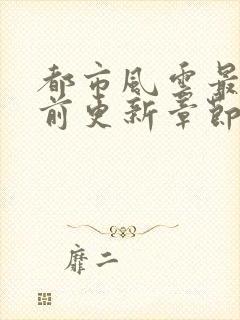 都市風雲最
前更新章節
靡二